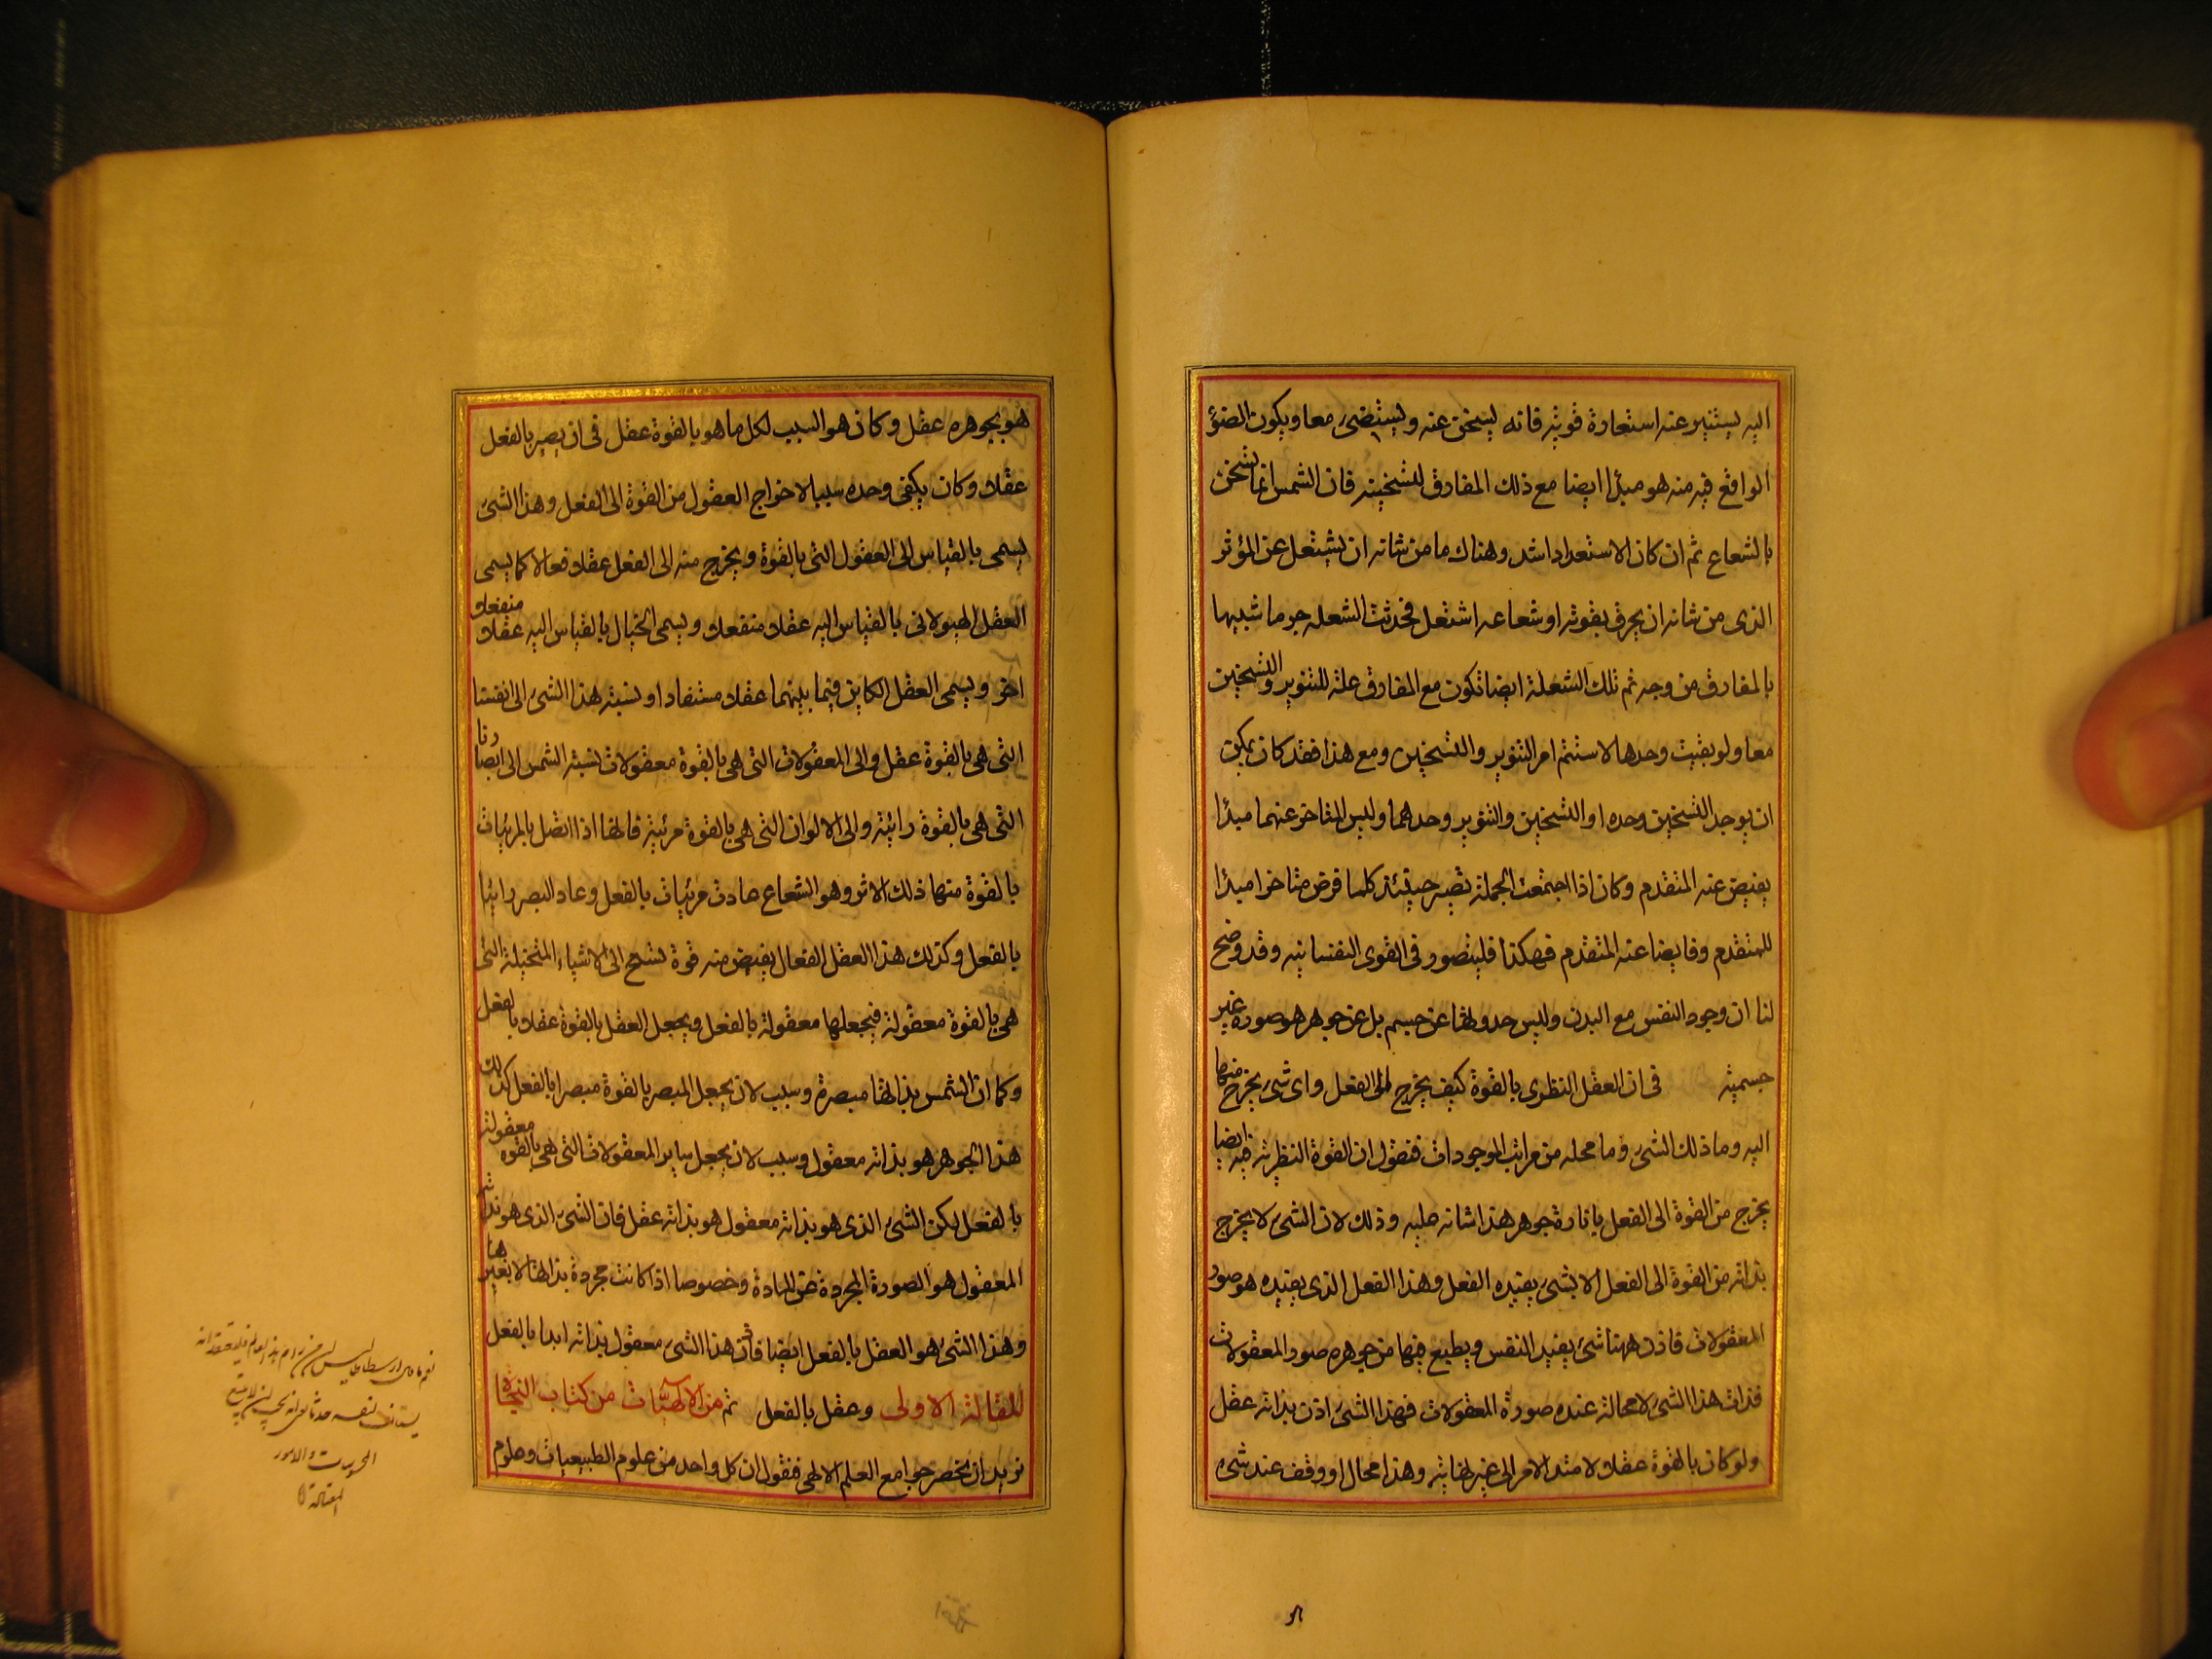 اليه يستنير عنه استعارة قوية فانه يسخن عنه ويستضئ معا ويكون الضوء
الواقع فيه منه هو مبدأ ايضا مع ذلك المفارق لتسخينه فان الشمس انما تسخن
بالشعاع ثم ان كان الاستعداد اشد وهناك ما من شانه ان يشتعل عن المؤثر
الذى من شانه ان يحرق بقوته او شعاعه اشتعل فحدثت الشعله جرما شبيها
بالمفارق من وجه ثم تلك الشعلة ايضا تكون مع المفارق علة للتنوير والتسخين
معا ولو بقيت وحدها لاستتم امر التنوير والتسخين ومع هذا فقد كان يمكن
ان يوجد التسخين وحده او التسخين والتنوير وحدهما وليس المتاخر عنهما مبدأ
يفيض عنه المتقدم وكان اذا اجتمعت الجملة تصير حينئذ كلما فرض متاخرا مبدأ
للمتقدم وفايضا عنه المتقدم فهكذا فليتصور فى القوى النفسانيه وقد وضح
لنا ان وجود النفس مع البدن وليس حدوثها عن جسم بل عن جوهر هو صورة غير
جسمية فى ان العقل النظرى بالقوة كيف يخرج الى الفعل واى شئ يخرج منها
اليه وما ذلك الشئ وما محله من مراتب الموجودات فنقول ان القوة النظرية فيه ايضا
يخرج من القوة الى الفعل بانارة جوهر هذا شانه عليه وذلك لان الشئ لا يخرج
بذاته من القوة الى الفعل الا بشئ يفيده الفعل وهذا الفعل الذى يفيده هو صور
المعقولات فاذن ههنا شئ يفيد النفس ويطبع فيها من جوهره صور المعقولات
فذات هذا الشئ لا محالة عنده صورة المعقولات فهذا الشئ اذن بذاته عقل
ولو كان بالقوة عقلا لامتد الامر الى غير نهاية وهذا محال او وقف عند شئ
هو بجوهره عقل وكان هو السبب لكل ما هو بالقوة عقل فى ان يصير بالفعل
عقلا وكان يكفى وحده سببا لاخراج العقول من القوة الى الفعل وهذا الشئ
يسمى بالقياس الى العقول التى بالقوة ويخرج منه الى الفعل عقلا فعالا كما يسمى
العقل الهيولانى بالقياس اليه عقلا منفعلا ويسمى الخيال بالقياس اليه عقلا منفعلا
اخر ويسمى العقل الكاين فيما بينهما عقلا مستفادا ونسبة هذا الشئ الى انفسنا
التى هى بالقوة عقل والى المعقولات التى هى بالقوة معقولات نسبة الشمس الى ابصارنا
التى هى بالقوة رائية والى الالوان التى هى بالقوة مرئية فانها اذا اتصل بالمرئيات
بالقوة منها ذلك الاثر وهو الشعاع عادت مرئيات بالفعل وعاد البصر رائيا
بالفعل وكذلك هذا العقل الفعال يفيض منه قوة تسيح الى الاشياء المتخيلة التى
هى بالقوة معقولة فيجعلها معقولة بالفعل ويجعل العقل بالقوة عقلا بالفعل
وكما ان الشمس بذاتها مبصرة وسبب لان يجعل المبصر بالقوة مبصرا بالفعل كذلك
هذا الجوهر هو بذاته معقول وسبب لان يجعل ساير المعقولات التى هى بالقوه معقولة
بالفعل لكن الشئ الذى هو بذاته معقول هو بذاته عقل فان الشئ الذى هو بذاته
المعقول هو الصورة المجردة عن المادة وخصوصا اذا كانت مجردة بذاتها لا بغيرها
وهذا الشئ هو العقل بالفعل ايضا فان هذا الشئ معقول بذاته ابدا بالفعل
المقالة الاولى وعقل بالفعل ثم من الالهيات من كتاب النجاة
نريد ان نحصر جوامع العلم الالهى فنقول ان كل واحد من علوم الطبيعيات وعلوم